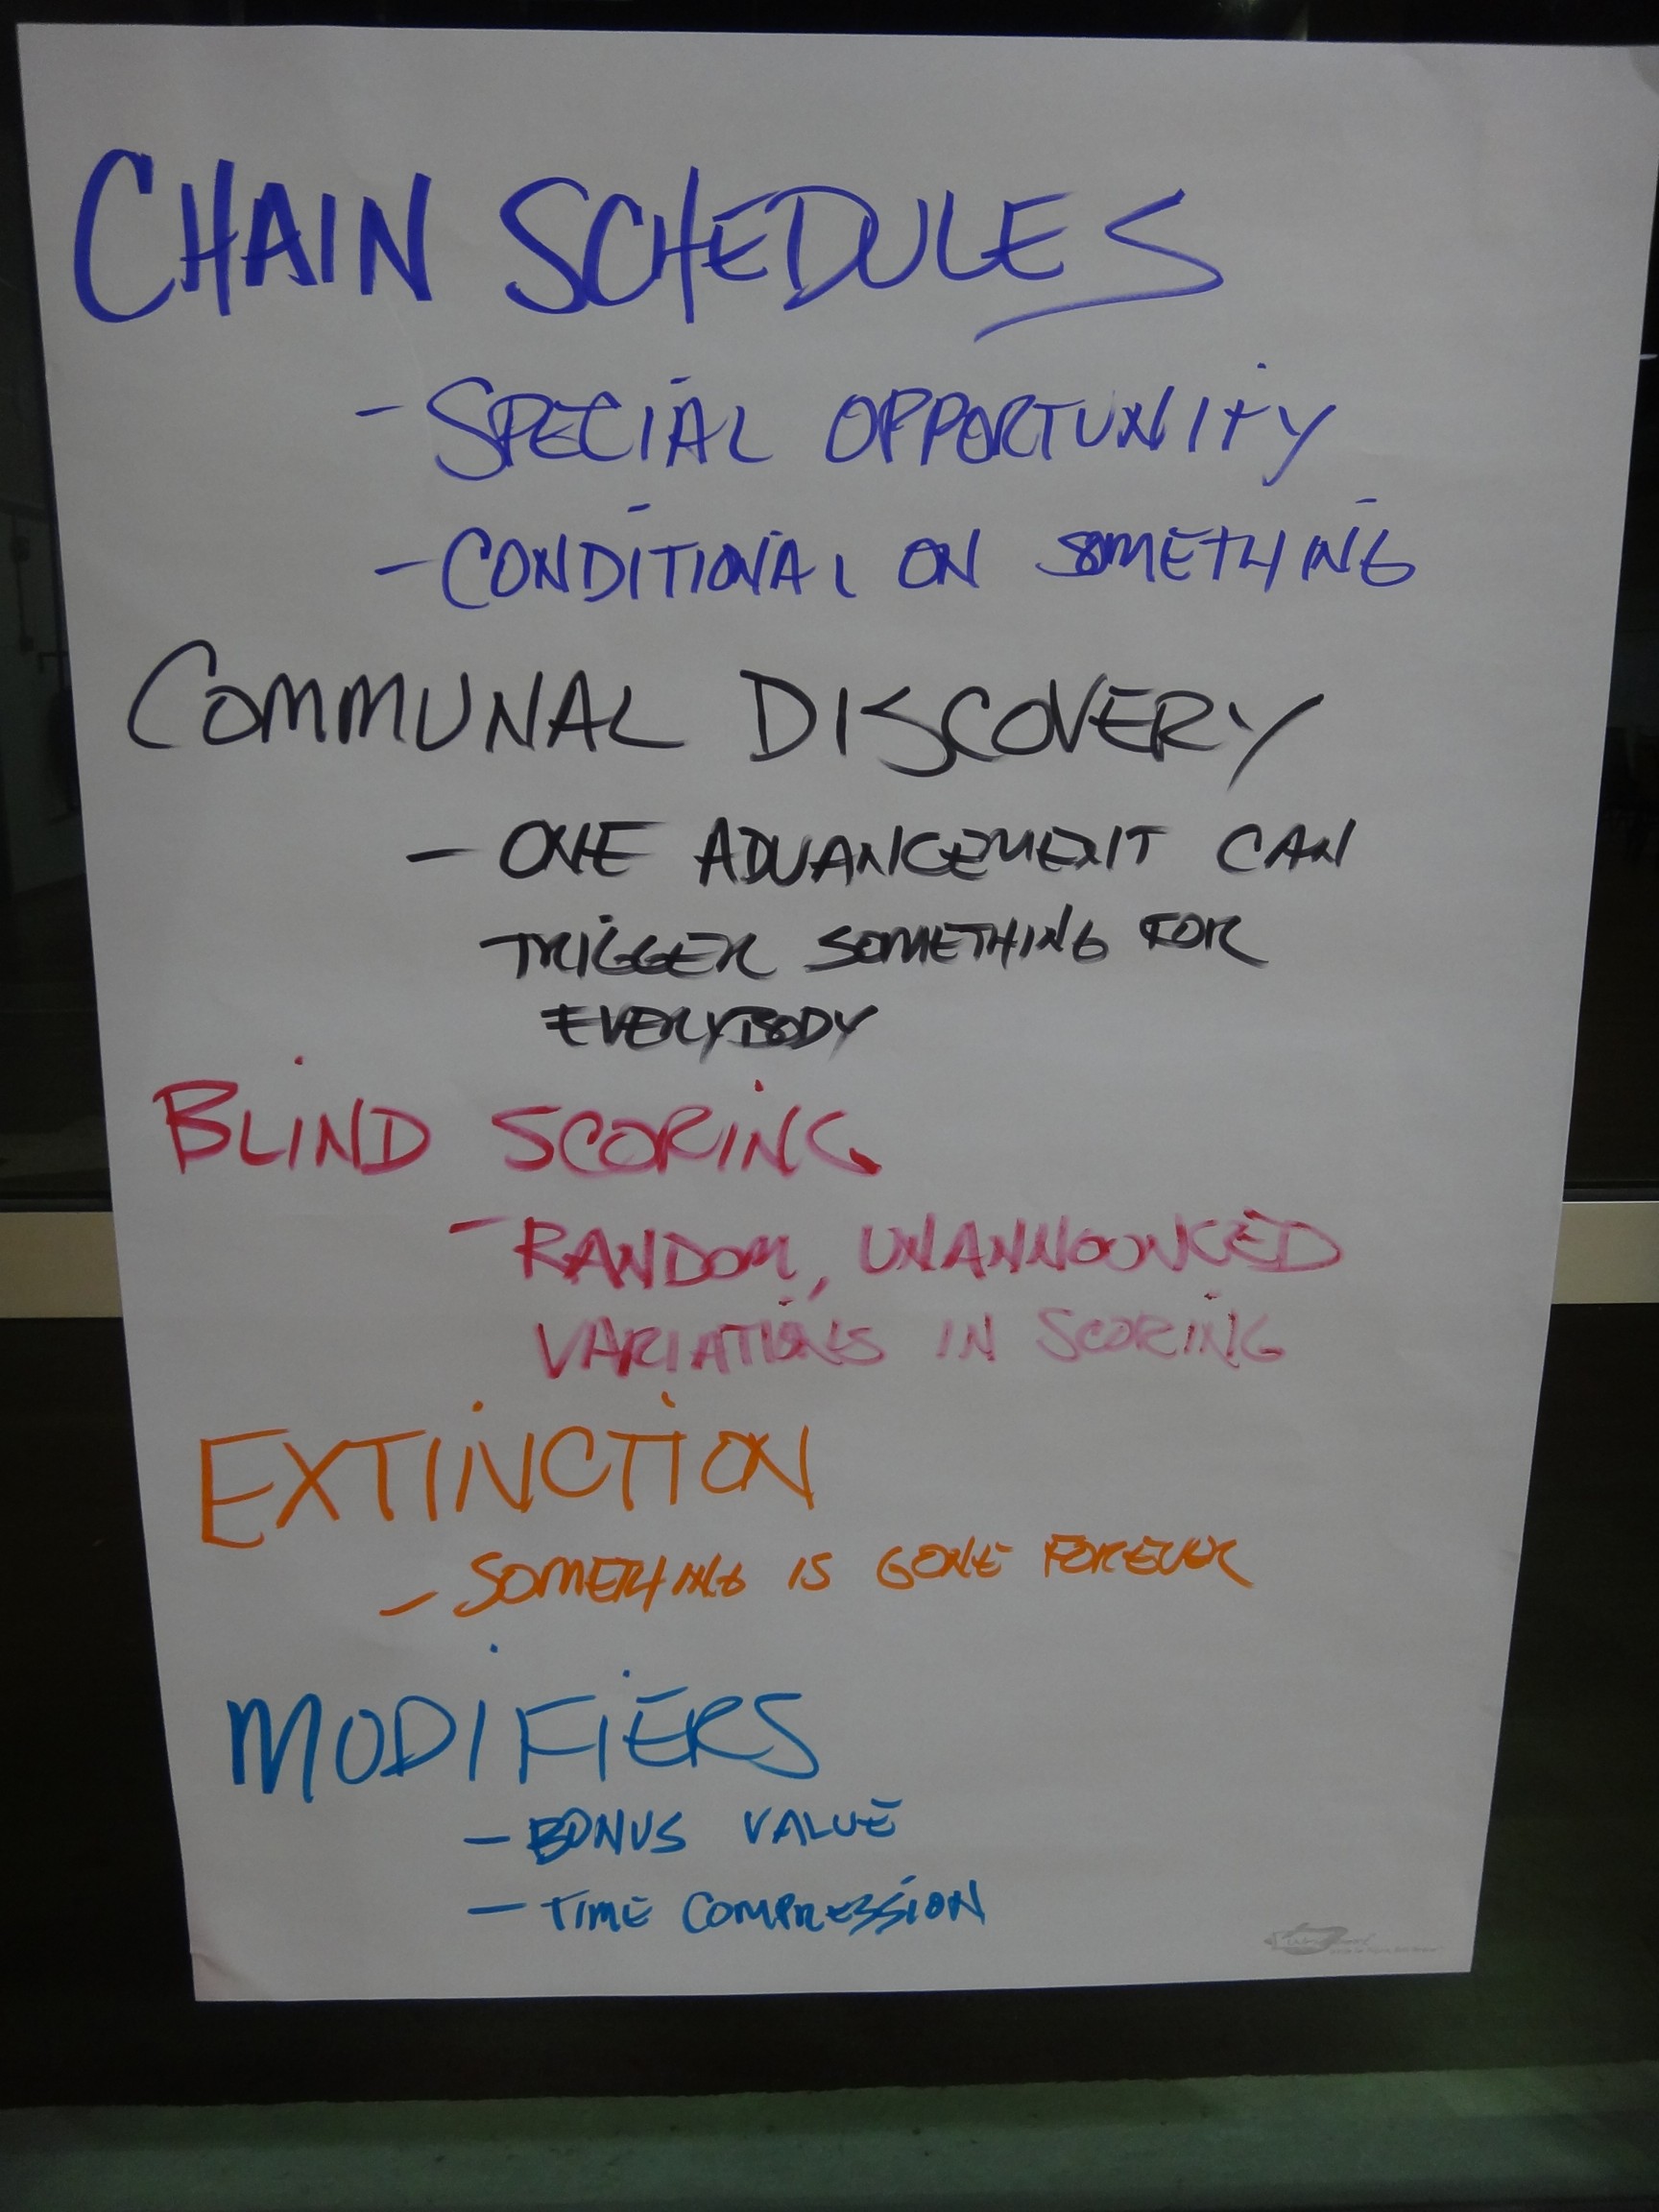 CHAIN SCHEDULES
- SPECIAL OPPORTUNITY
- CONDITIONAL ON SOMETHING
COMMUNAL DISCOVERY
- ONE ADVANCEMENT CAN
TRIGGER SOMETHING FOR
EVERYBODY
BLIND SCORING
- RANDOM, UNANNOUNCED
VARIATIONS IN SCORING
EXTINCTION
- SOMETHING IS GONE FOREVER
MODIFIERS
- BONUS VALUE
- TIME COMPRESSION